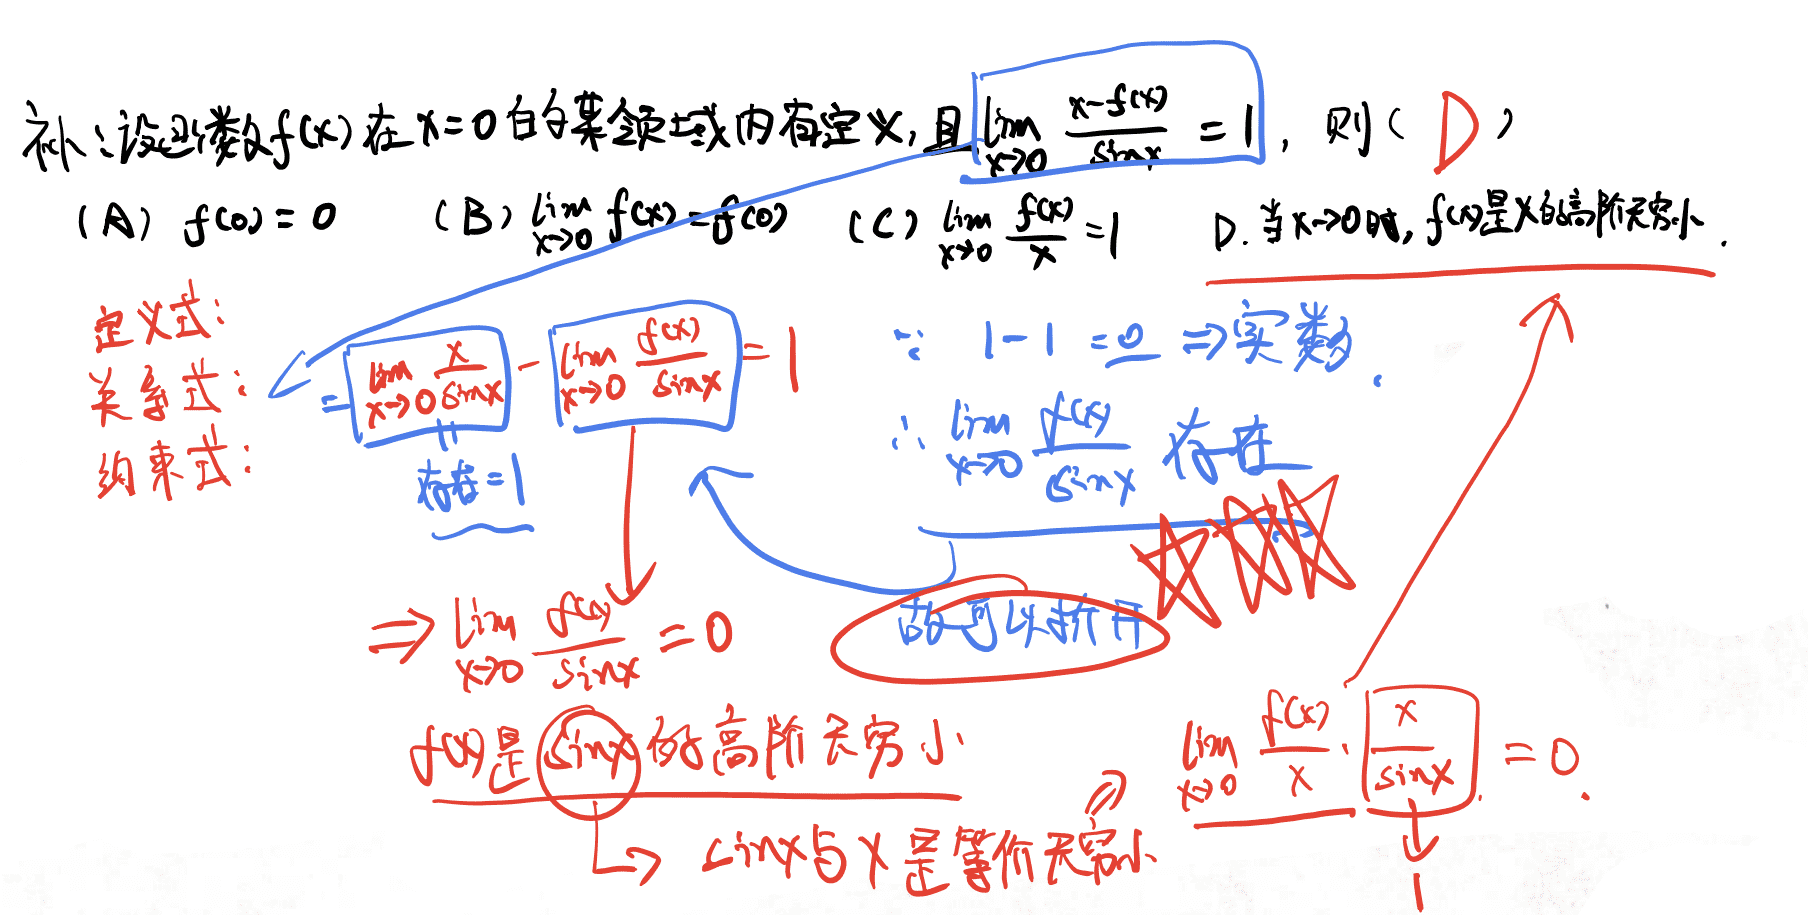 补:设函数f(x)在x=0的某领域内有定义,且lim x→0 (x-f(x))/sinx = 1, 则( D )
(A) f(0)=0 (B) lim x→0 f(x)=f(0) (C) lim x→0 f(x)/x =1 D. 当x→0时, f(x)是x的高阶无穷小.
定义式:
关系式:
约束式:
= lim x→0 x/sinx - lim x→0 f(x)/sinx = 1
存在=1
∵ 1-1=0 ⇒实数.
∴ lim x→0 f(x)/sinx 存在
故可以拆开
⇒ lim x→0 f(x)/sinx = 0
f(x)是sinx的高阶无穷小
sinx与x是等价无穷小
lim x→0 f(x)/x · x/sinx = 0.
1